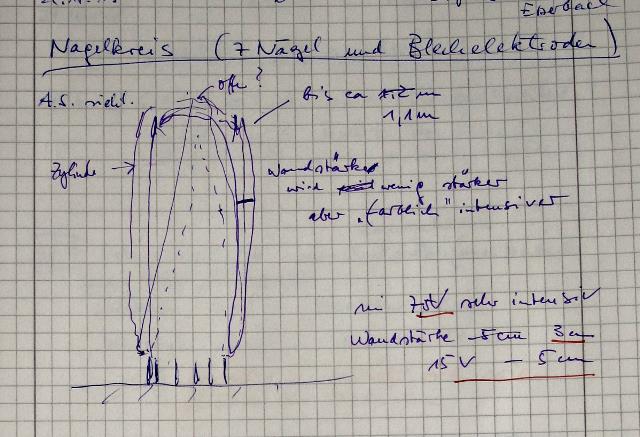 Eberbach
Nagelkreis (7 Nägel und Blechelektroden)
A.S. nicht.
offen?
bis ca 1,2 m
1,1m
Zylinder
Wandstärke
wird wenig stärker
aber "farblich" intensiver
sehr intensiv
Wandstärke 5cm 3cm
15V - 5cm